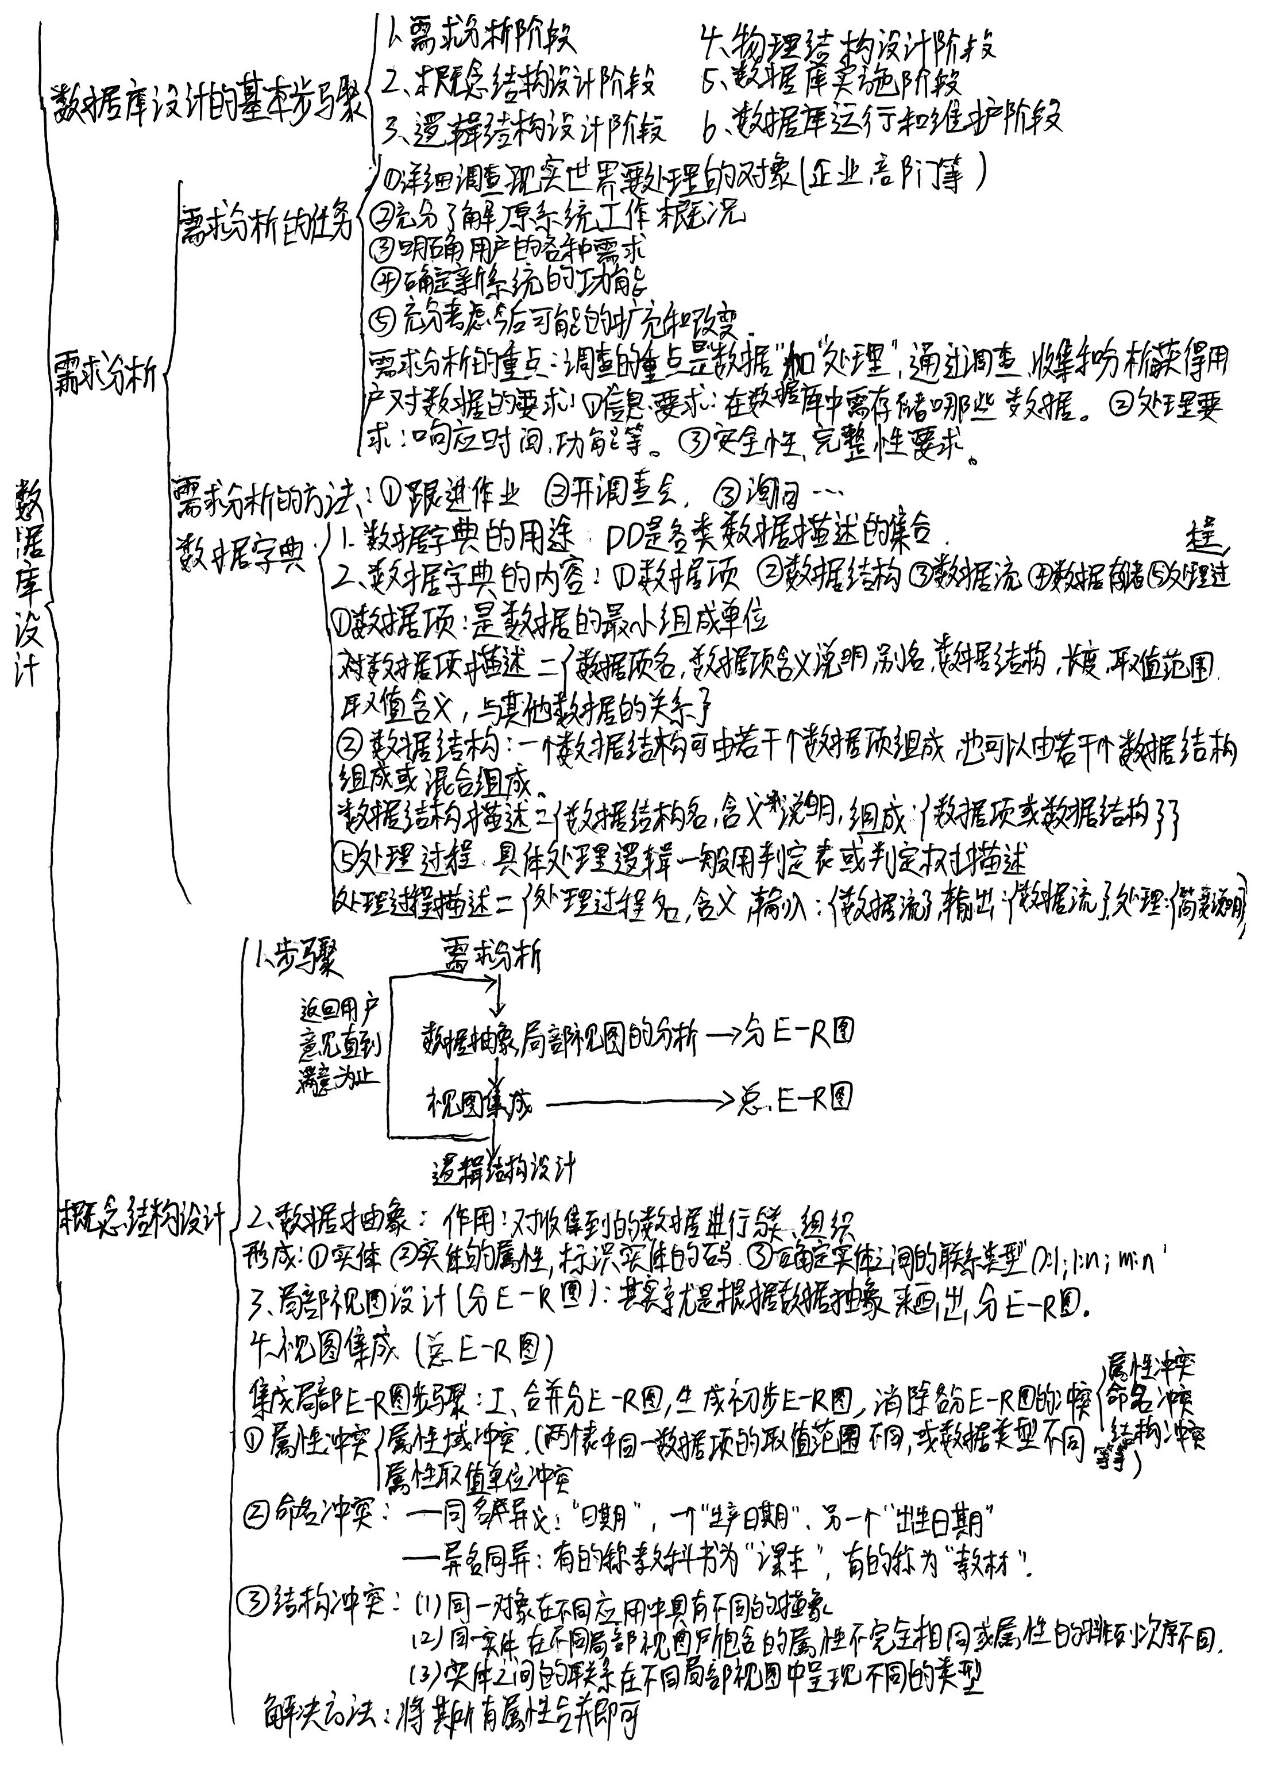 数据库设计
数据库设计的基本步骤
1、需求分析阶段
2、概念结构设计阶段
3、逻辑结构设计阶段
4、物理结构设计阶段
5、数据库实施阶段
6、数据库运行和维护阶段
需求分析
需求分析的任务
①详细调查现实世界要处理的对象(企业,部门等)
②充分了解原系统工作概况
③明确用户的各种需求
④确定新系统的功能
⑤充分考虑今后可能的扩充和改变.
需求分析的重点:调查的重点是"数据"和"处理",通过调查,收集和分析获得用
户对数据的要求:①信息要求:在数据库中需存储哪些数据。②处理要
求:响应时间,功能等。③安全性、完整性要求。
需求分析的方法:①跟进作业 ②开调查会, ③询问…
数据字典
1、数据字典的用途 DD是各类数据描述的集合.
2、数据字典的内容:①数据项 ②数据结构 ③数据流 ④数据存储 ⑤处理过
程
①数据项:是数据的最小组成单位
对数据项描述={数据项名,数据项含义说明,别名,数据结构,长度,取值范围,
取值含义,与其他数据的关系}
②数据结构:一个数据结构可由若干个数据项组成,也可以由若干个数据结构
组成或混合组成。
数据结构描述={数据结构名,含义说明,组成:{数据项或数据结构}}
⑤处理过程:具体处理逻辑一般用判定表或判定树描述
处理过程描述={处理过程名,含义,输入:{数据流},输出:{数据流},处理:{简要说明}}
概念结构设计
1、步骤
需求分析
返回用户
意见直到
满意为止
数据抽象,局部视图的分析→分E-R图
视图集成→总E-R图
逻辑结构设计
2、数据抽象:作用:对收集到的数据进行分类、组织
形成:①实体 ②实体的属性,标识实体的码 ③确定实体之间的联系类型(1:1;1:n;m:n
3、局部视图设计(分E-R图):其实就是根据数据抽象来画出分E-R图.
4、视图集成(总E-R图)
集成局部E-R图步骤:I、合并分E-R图,生成初步E-R图,消除各分E-R图的冲突
属性冲突
命名冲突
结构冲突
①属性冲突
属性域冲突.(两表中同一数据项的取值范围不同,或数据类型不同等等)
属性取值单位冲突
②命名冲突:—同名异义:"日期",一个"生产日期",另一个"出生日期"
—异名同异:有的称教科书为"课本",有的称为"教材".
③结构冲突:(1)同一对象在不同应用中具有不同的抽象
(2)同一实体在不同局部视图所包含的属性不完全相同或属性的排列次序不同.
(3)实体之间的联系在不同局部视图中呈现不同的类型
解决方法:将其所有属性合并即可